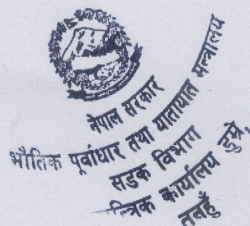 नेपाल सरकार
भौतिक पूर्वाधार तथा यातायात मन्त्रालय
सडक विभाग
कार्यालय डुम्रे,
तनहुँ